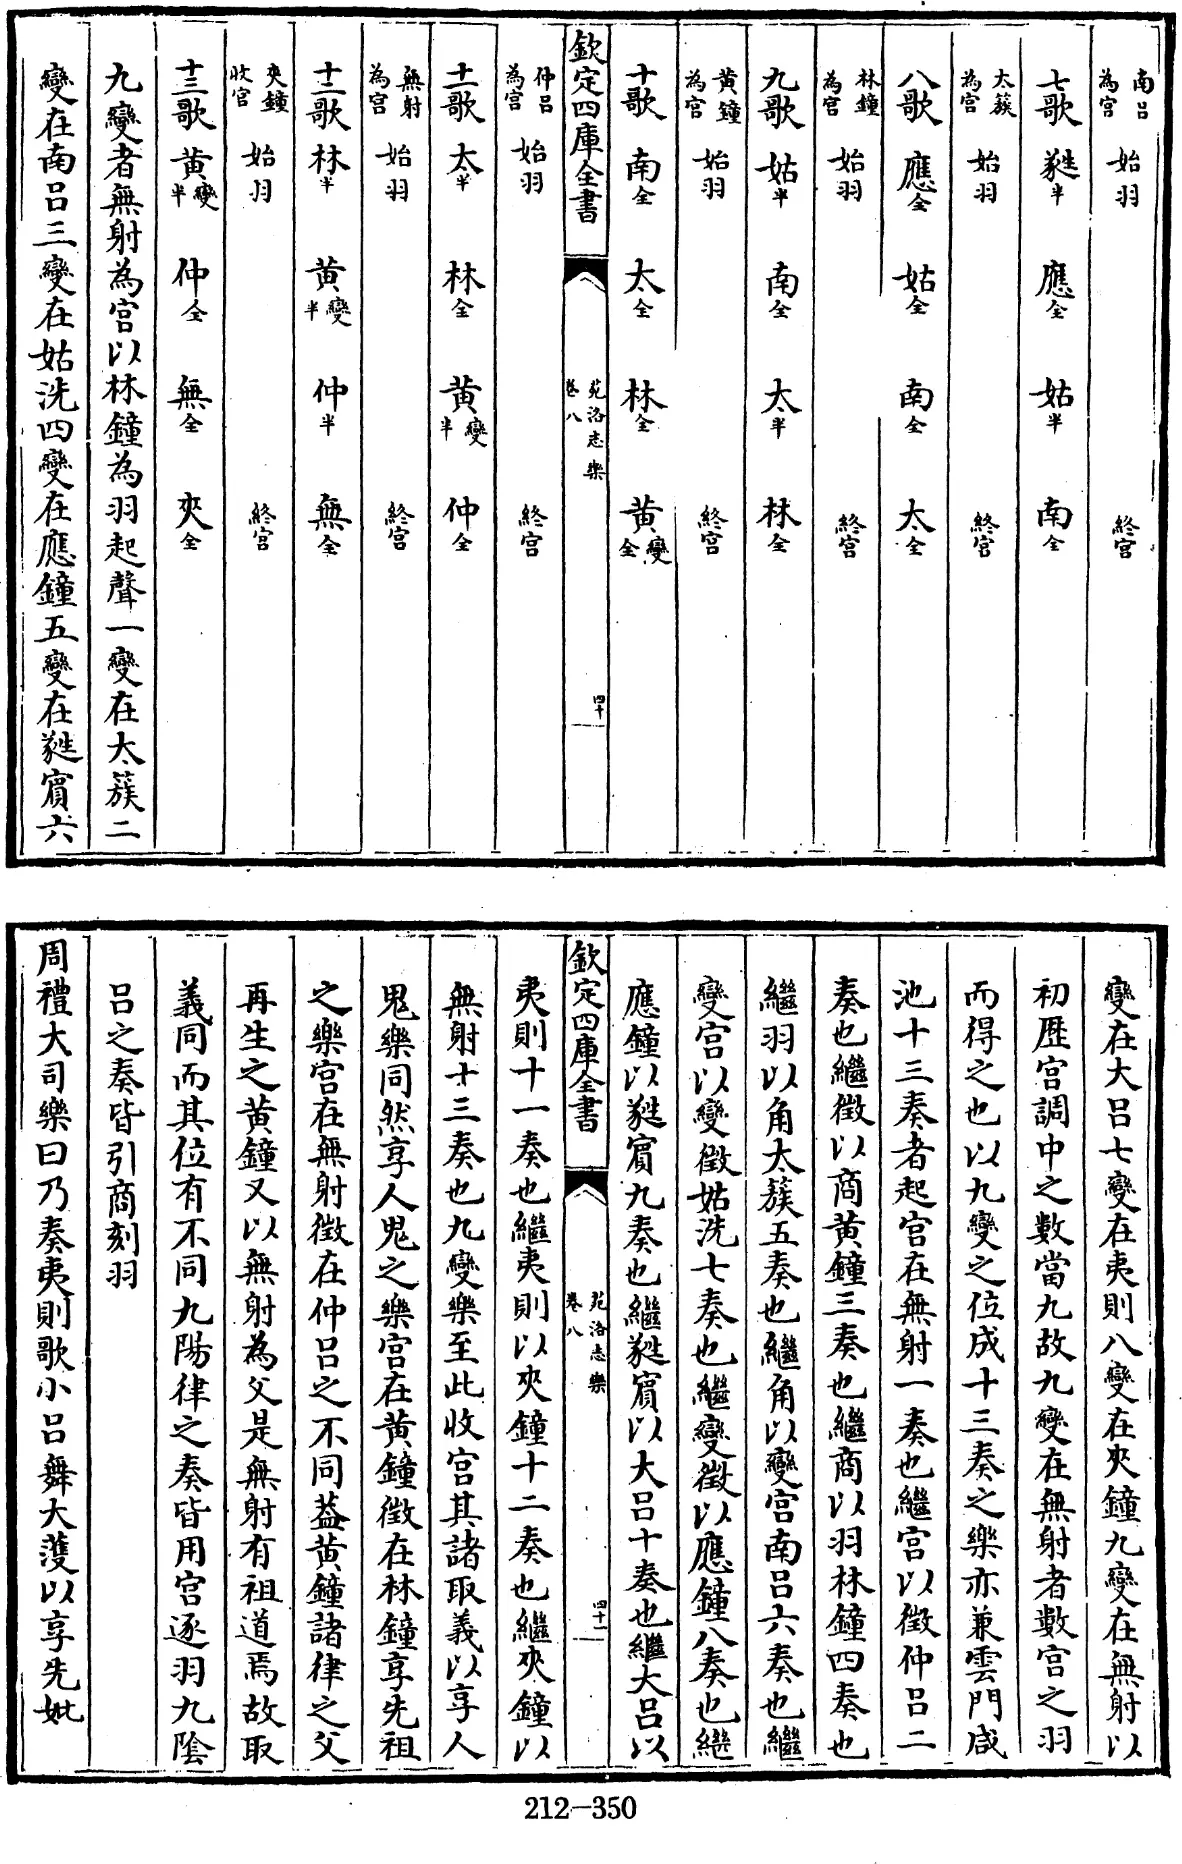 南呂為宮　始羽　終宮
七歌　蕤半　應全　姑半　南全
太簇為宮　始羽　終宮
八歌　應全　姑全　南全　太全
林鐘為宮　始羽　終宮
九歌　姑半　南全　太半　林全
黃鐘為宮　始羽　終宮
十歌　南全　太全　林全　黃變全
欽定四庫全書　苑洛志樂卷八　四十
仲呂為宮　始羽　終宮
十一歌　太半　林全　黃變半　仲全
無射為宮　始羽　終宮
十二歌　林半　黃變半　仲半　無全
夾鐘收宮　始羽　終宮
十三歌　黃變半　仲全　無全　夾全
九變者無射為宮以林鐘為羽起聲一變在太簇二
變在南呂三變在姑洗四變在應鐘五變在蕤賔六
變在大呂七變在夷則八變在夾鐘九變在無射以
初歷宮調中之數當九故九變在無射者數宮之羽
而得之也以九變之位成十三奏之樂亦兼雲門咸
池十三奏者起宮在無射一奏也繼宮以徵仲呂二
奏也繼徵以商黃鐘三奏也繼商以羽林鐘四奏也
繼羽以角太簇五奏也繼角以變宮南呂六奏也繼
變宮以變徵姑洗七奏也繼變徵以應鐘八奏也繼
應鐘以蕤賔九奏也繼蕤賔以大呂十奏也繼大呂以
欽定四庫全書　苑洛志樂卷八　四十一
夷則十一奏也繼夷則以夾鐘十二奏也繼夾鐘以
無射十三奏也九變樂至此收宮其諸取義以享人
鬼樂同然享人鬼之樂宮在黃鐘徵在林鐘享先祖
之樂宮在無射徵在仲呂之不同葢黃鐘諸律之父
再生之黃鐘又以無射為父是無射有祖道焉故取
義同而其位有不同九陽律之奏皆用宮逐羽九隂
呂之奏皆引商刻羽
周禮大司樂曰乃奏夷則歌小呂舞大濩以享先妣
212-350